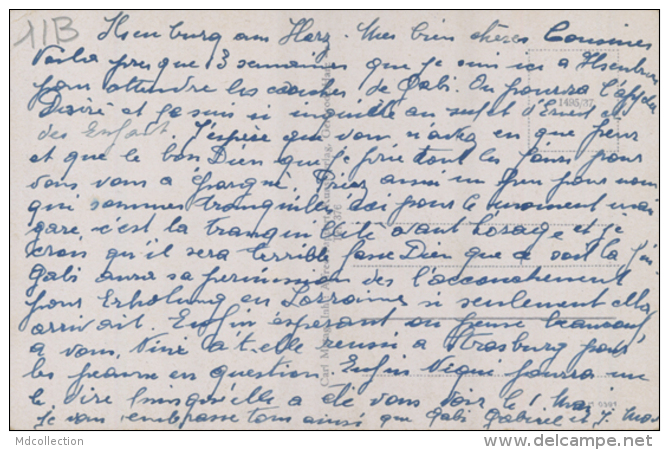 11B
Ilsenburg am Harz. Mes bien chères Cousines
Voila presque 3 semaines que je suis ici a Ilsenburg
pour attendre les couches de Gabi. On pourra l'appeler
Désiré et je suis si inquiète au sujet d'Ernest et
des Enfant. J'espère que vous n'avez eu que peur
et que le bon Dieu que je prie tout les jours pour
vous vous a épargné. Priez aussi un peu pour nous
qui sommes tranquilles ici pour le moment mai
gare c'est la tranquillité avant l'orage et je
crois qu'il sera terrible fasse Dieu que ce soit la fin
Gabi aura sa permission des l'accouchement
pour Erholung en Lorraine si seulement elle
arrivait. Enfin espérant on pense beaucoup
a vous. a t-elle reussi a Strasburg pour
les en question. Enfin pourra me
le dire puisqu'elle a dé vous voir le 1 Mai
Je vous embrasse tous ainsi que Gabi Gabriel et J. Mar
1495/37
Mdcollection
www.delcampe.net